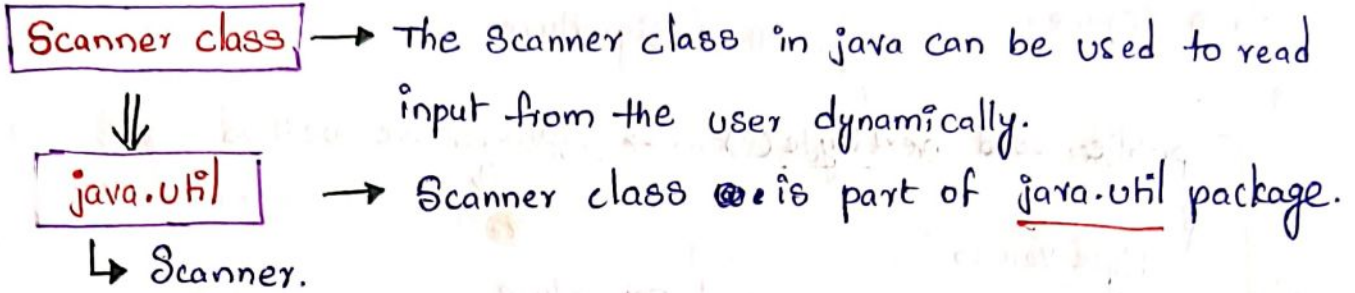 Scanner class → The Scanner class in java can be used to read
input from the user dynamically.
java.util → Scanner class is part of java.util package.
↳ Scanner.